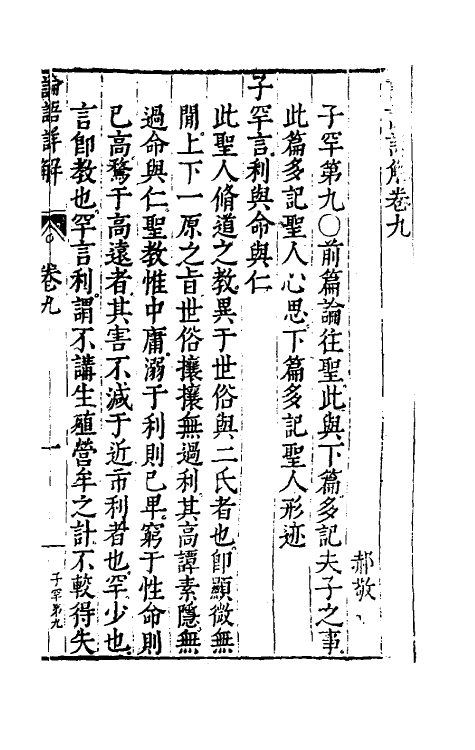 語詳解卷九
郝敬
子罕第九○前篇論往聖此與下篇多記夫子之事
此篇多記聖人心思下篇多記聖人形迹
子罕言利與命與仁
此聖人脩道之教異于世俗與二氏者也卽顯微無
間上下一原之旨世俗攘攘無過利其高譚素隱無
過命與仁聖教惟中庸溺于利則已卑窮于性命則
已高騖于高遠者其害不減于近市利者也罕少也
言卽教也罕言利謂不講生殖營牟之計不較得失
論語詳解
卷九
一
子罕第九